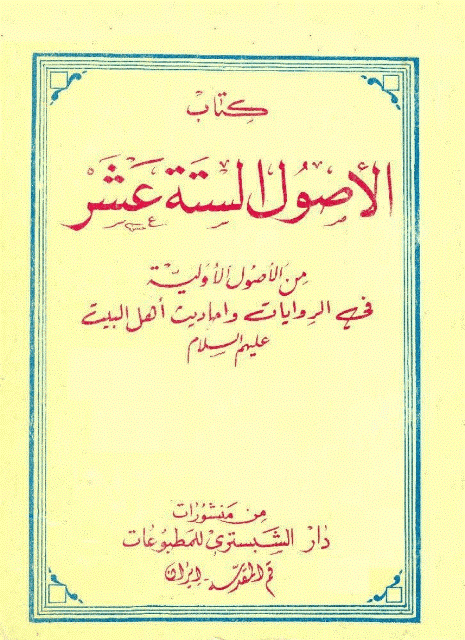 كتاب
الأصول الستة عشر
من الأصول الأولية
في الروايات واحاديث أهل البيت
عليهم السلام
من منشورات
دار الشبستري للمطبوعات
قم المقدسة - ايران